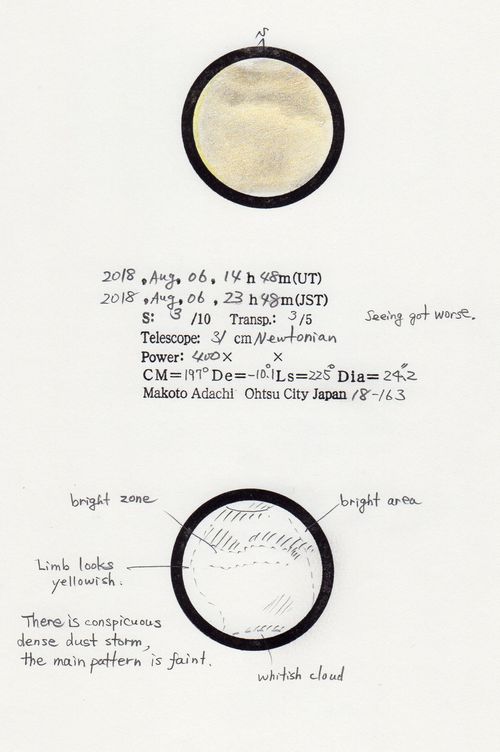 N
2018, Aug, 06, 14 h 48m(UT)
2018, Aug, 06, 23 h 48m(JST)
S: 3 /10 Transp.: 3/5
Seeing got worse.
Telescope: 31 cm Newtonian
Power: 400× ×
CM=197° De=-10.1° Ls=225° Dia= 24."2
Makoto Adachi Ohtsu City Japan 18-163
bright zone
bright area
Limb looks
yellowish.
There is conspicuous
dense dust storm,
the main pattern is faint.
whitish cloud